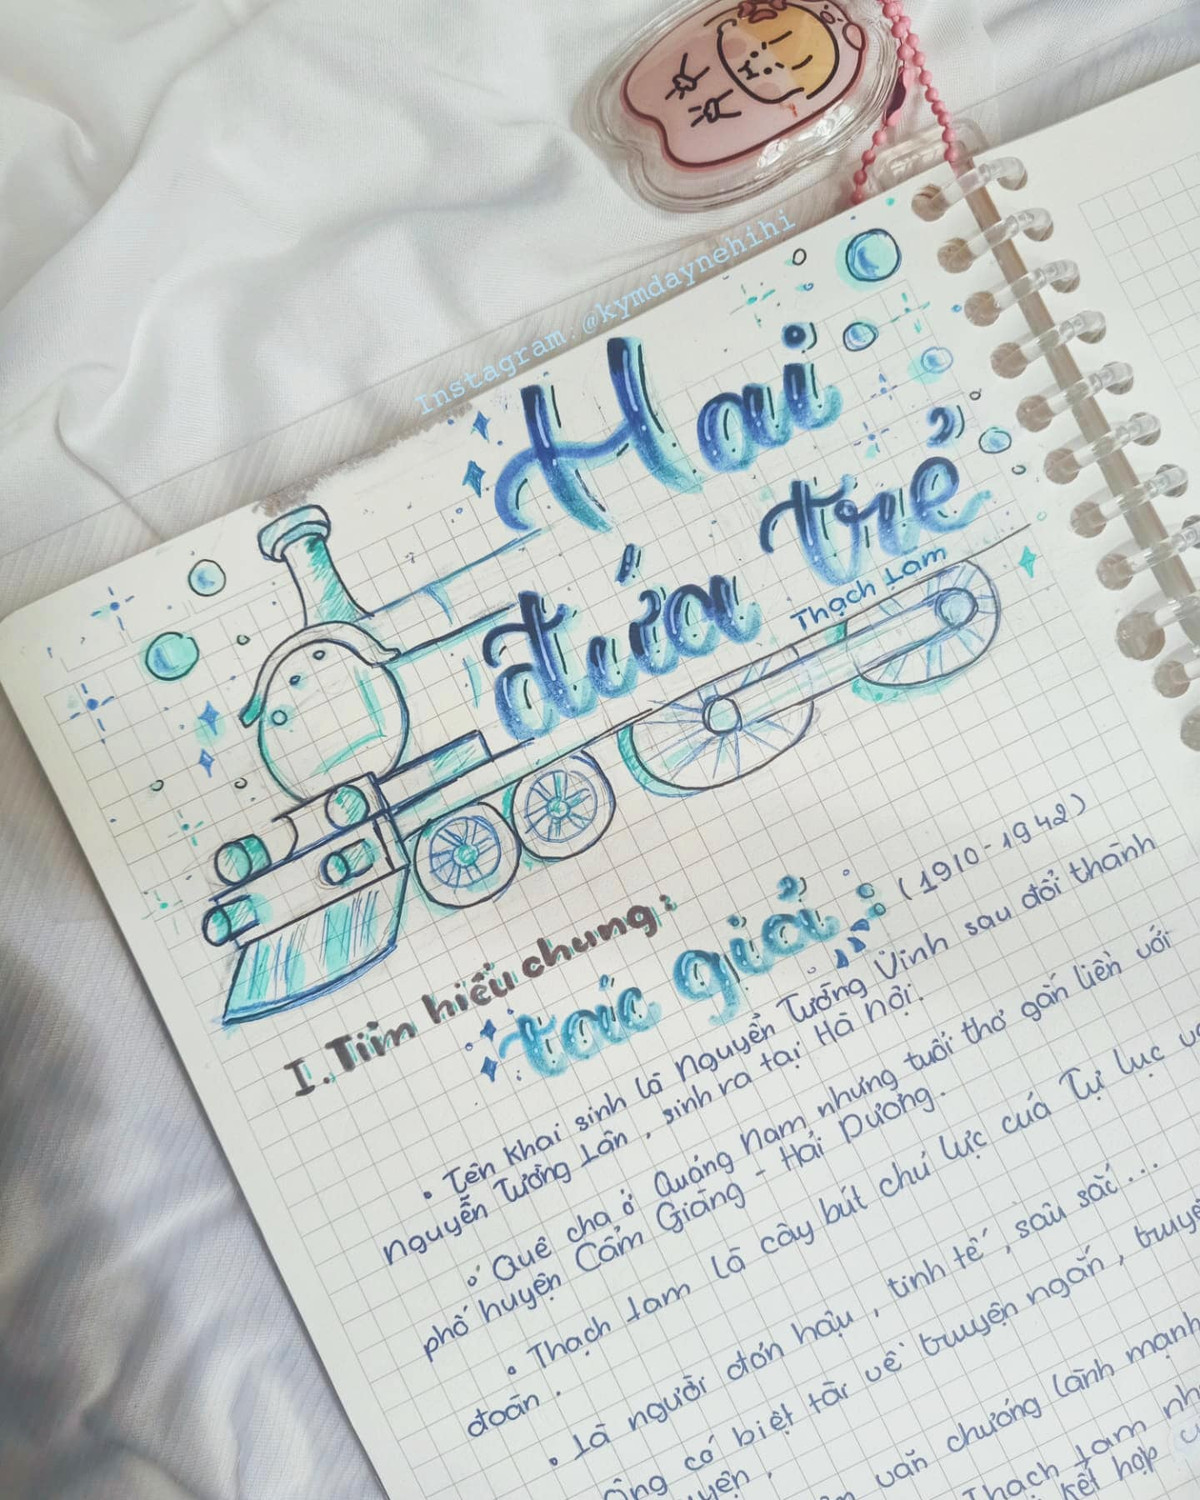 Instagram: @kymdaynehihi
Hai
đứa trẻ
Thạch Lam
I. Tìm hiểu chung:
tác giả: (1910-1942)
• Tên khai sinh là Nguyễn Tường Vinh sau đổi thành
Nguyễn Tường Lân, sinh ra tại Hà Nội.
• Quê cha ở Quảng Nam nhưng tuổi thơ gắn liền với
phố huyện Cẩm Giàng - Hải Dương.
• Thạch Lam là cây bút chủ lực của Tự Lực
đoàn.
• Là người đôn hậu, tinh tế, sâu sắc...
Ông có biệt tài về truyện ngắn,
văn chương lành mạnh
Thạch Lam
kết hợp